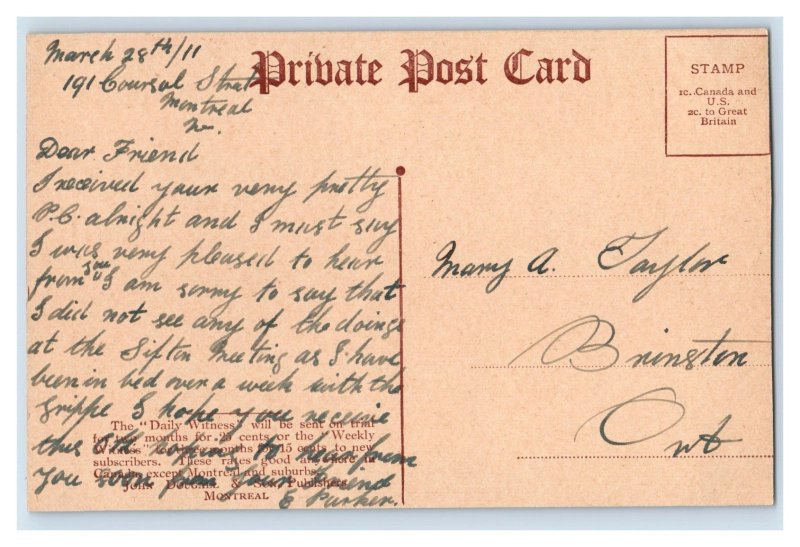 March 28th/11
191 Coursol Street
Montreal
Private Post Card
STAMP
1c. Canada and
U.S.
2c. to Great
Britain
Dear Friend
I received your very pretty
P.C. alright and I must say
I was very pleased to hear
from you I am sorry to say that
I did not see any of the doings
at the Sifton Meeting as I have
been in bed over a week with the
Grippe I hope you receive
this O.K. hoping to hear from
you soon from your Friend
E Parker.
The "Daily Witness" will be sent on trial
for two months for 25 cents or the "Weekly
Witness" months for 15 cents to new
subscribers. These rates good anywhere in
Canada except Montreal and suburbs.
John Dougall & Son, Publishers
Montreal
Mary A. Taylor
Brinston
Ont